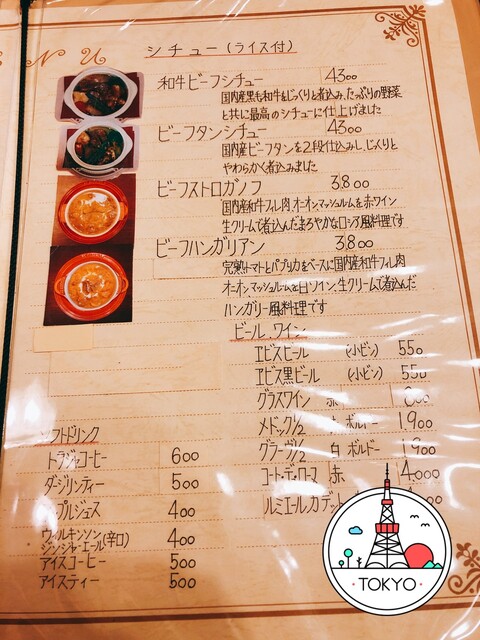 ENU
シチュー(ライス付)
和牛ビーフシチュー 4300
国内産黒毛和牛をじっくりと煮込み、たっぷりの野菜
と共に最高のシチューに仕上げました
ビーフタンシチュー 4300
国内産ビーフタンを2段仕込みし、じっくりと
やわらかく煮込みました
ビーフストロガノフ 3,800
国内産和牛フィレ肉、オニオン、マッシュルームを赤ワイン
生クリームで煮込んだまろやかなロシア風料理です
ビーフハンガリアン 3,800
完熟トマトとパプリカをベースに国内産和牛フィレ肉
オニオン、マッシュルームを白ワイン、生クリームで煮込んだ
ハンガリー風料理です
ビール、ワイン
エビスビール (小ビン) 550
エビス黒ビール (小ビン) 550
グラスワイン 赤
メドック1/2 ボルドー 1,900
グラーヴ1/2 白 ボルドー 1,900
コート・デ・ローヌ 赤 4,000
ルミエールカデット
ソフトドリンク
トラジャコーヒー 600
ダージリンティー 500
プルジュス 400
ウィルキンソン
ジンジャーエール(辛口) 400
アイスコーヒー 500
アイスティー 500
TOKYO